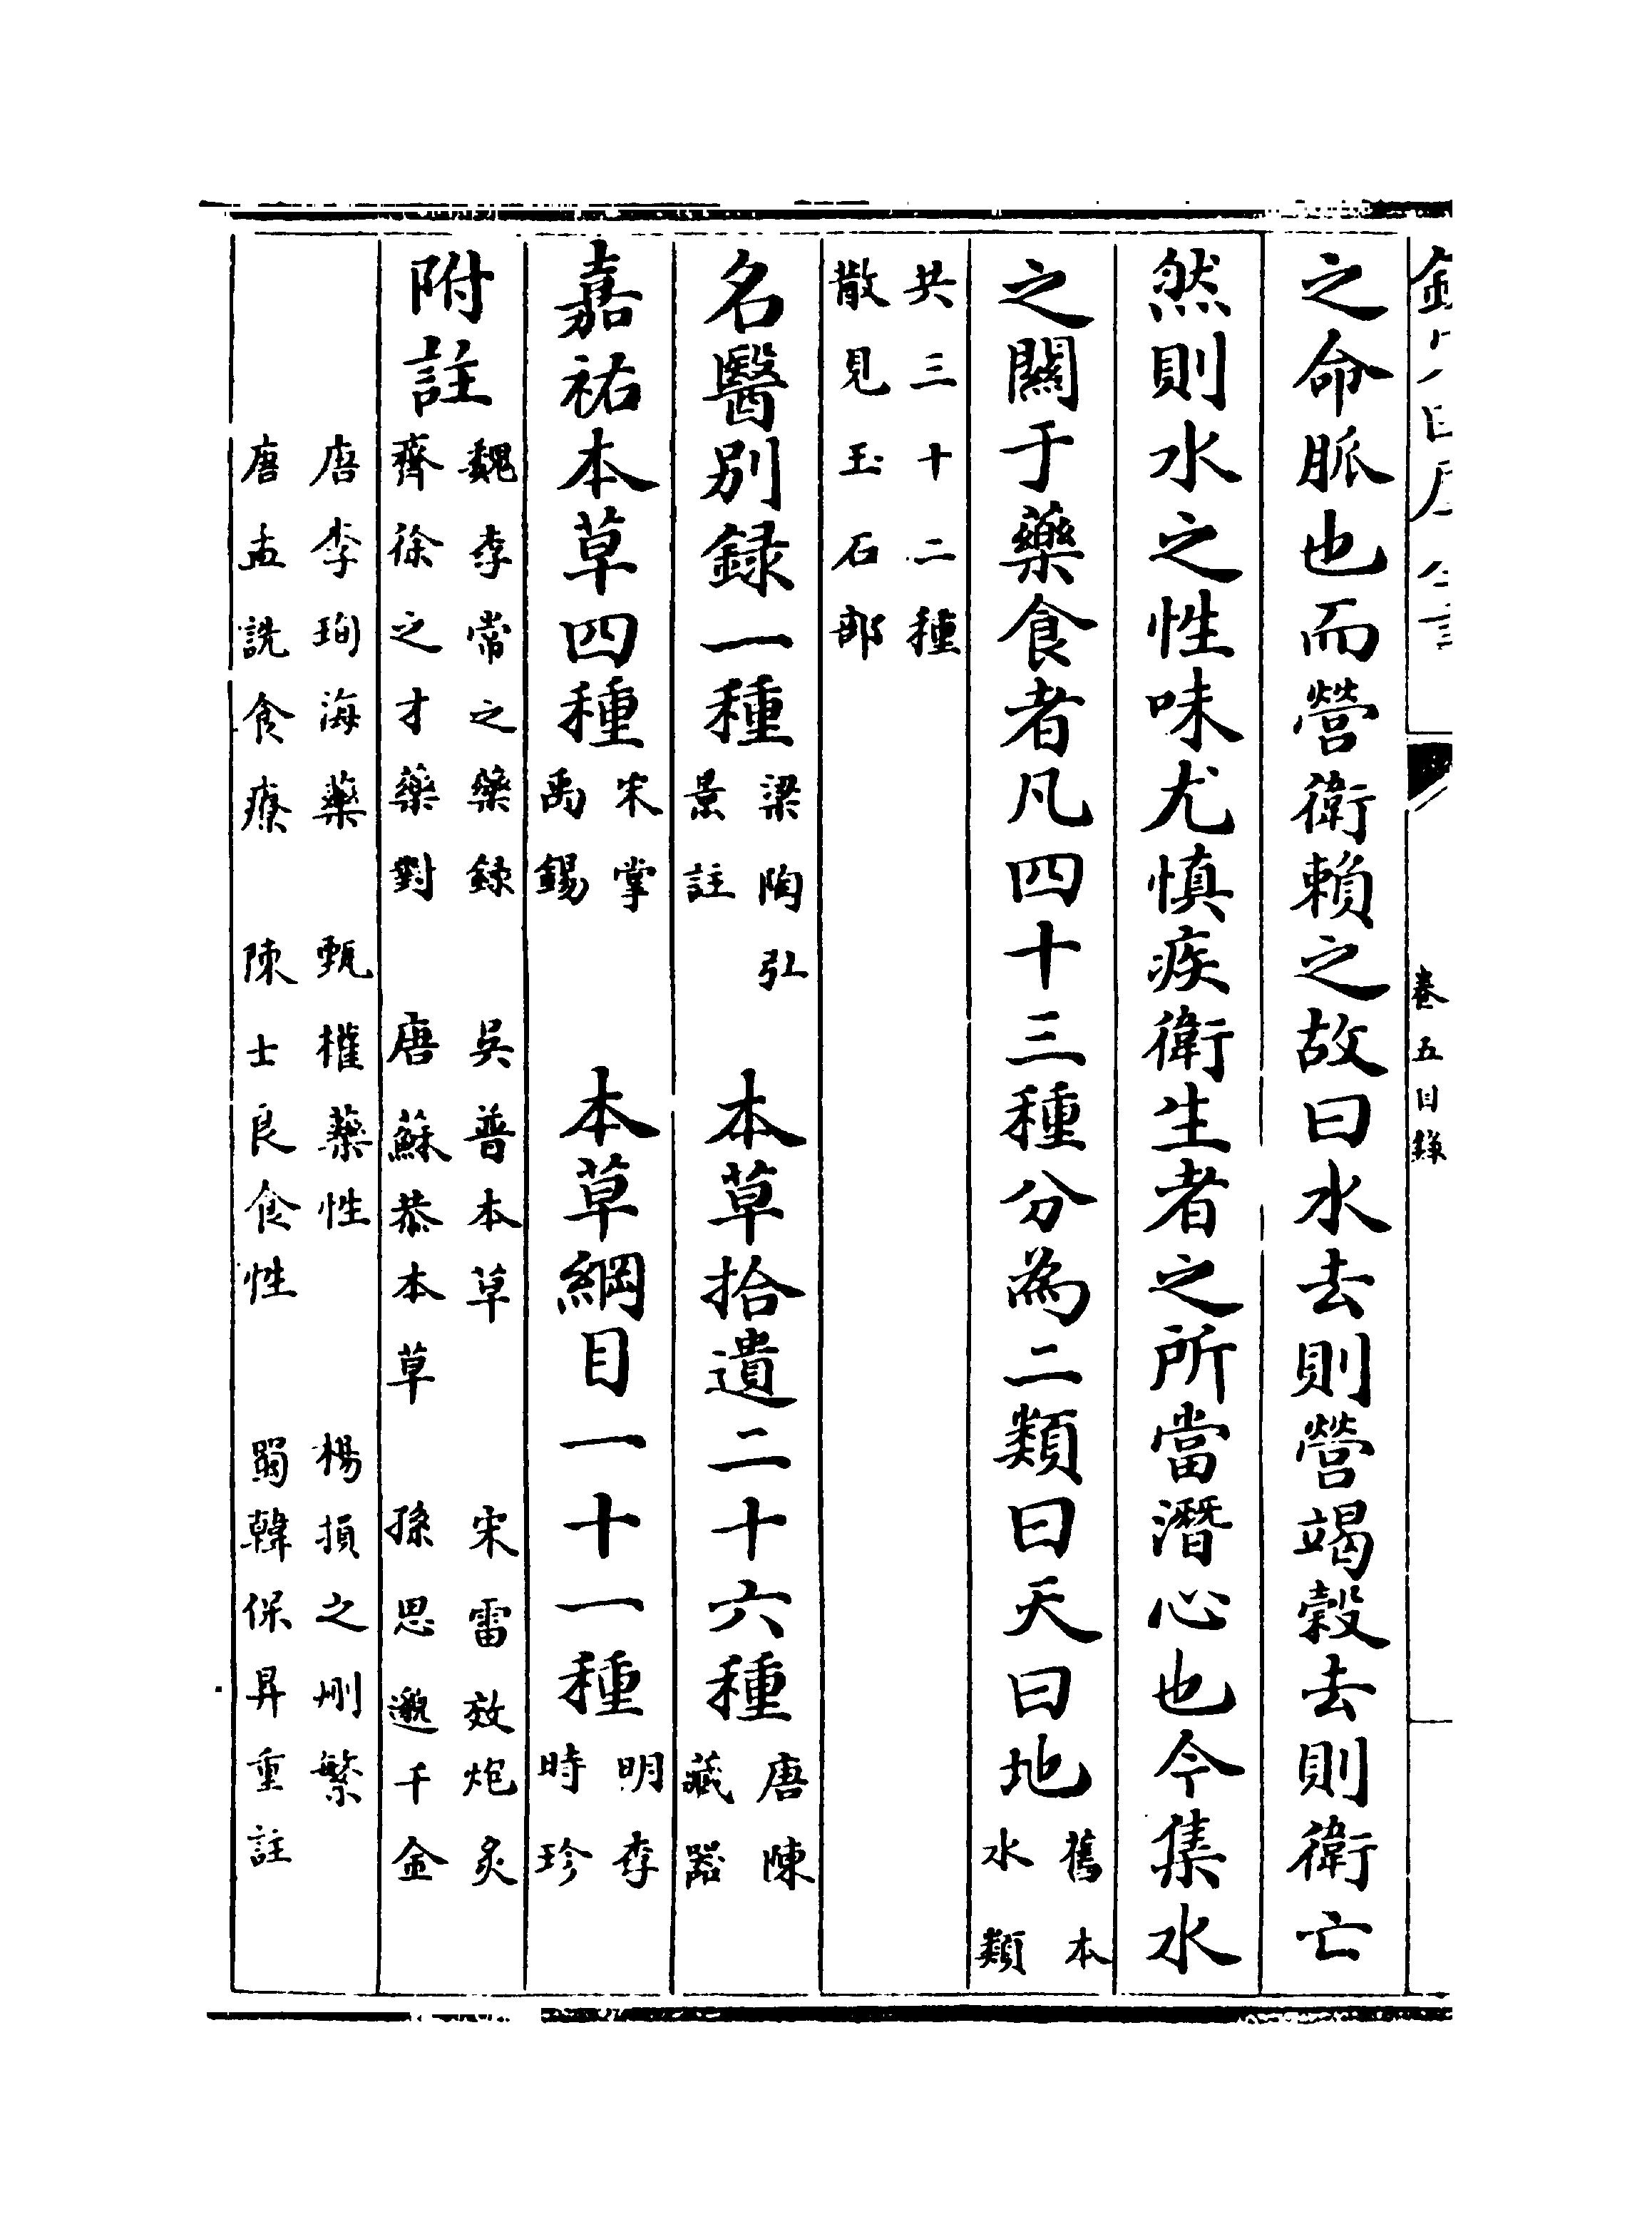 卷五目錄
之命脈也而營衛賴之故曰水去則營竭穀去則衛亡
然則水之性味尤慎疾衛生者之所當潛心也今集水
之關于藥食者凡四十三種分為二類曰天曰地舊本水類
共三十二種散見玉石部
名醫別録一種梁陶弘景註 本草拾遺二十六種唐陳藏器
嘉祐本草四種宋掌禹錫 本草綱目一十一種明李時珍
附註魏李當之藥録 吳普本草 宋雷斆炮炙
齊徐之才藥對 唐蘇恭本草 孫思邈千金
唐李珣海藥 甄權藥性 楊損之刪繁
唐孟詵食療 陳士良食性 蜀韓保昇重註